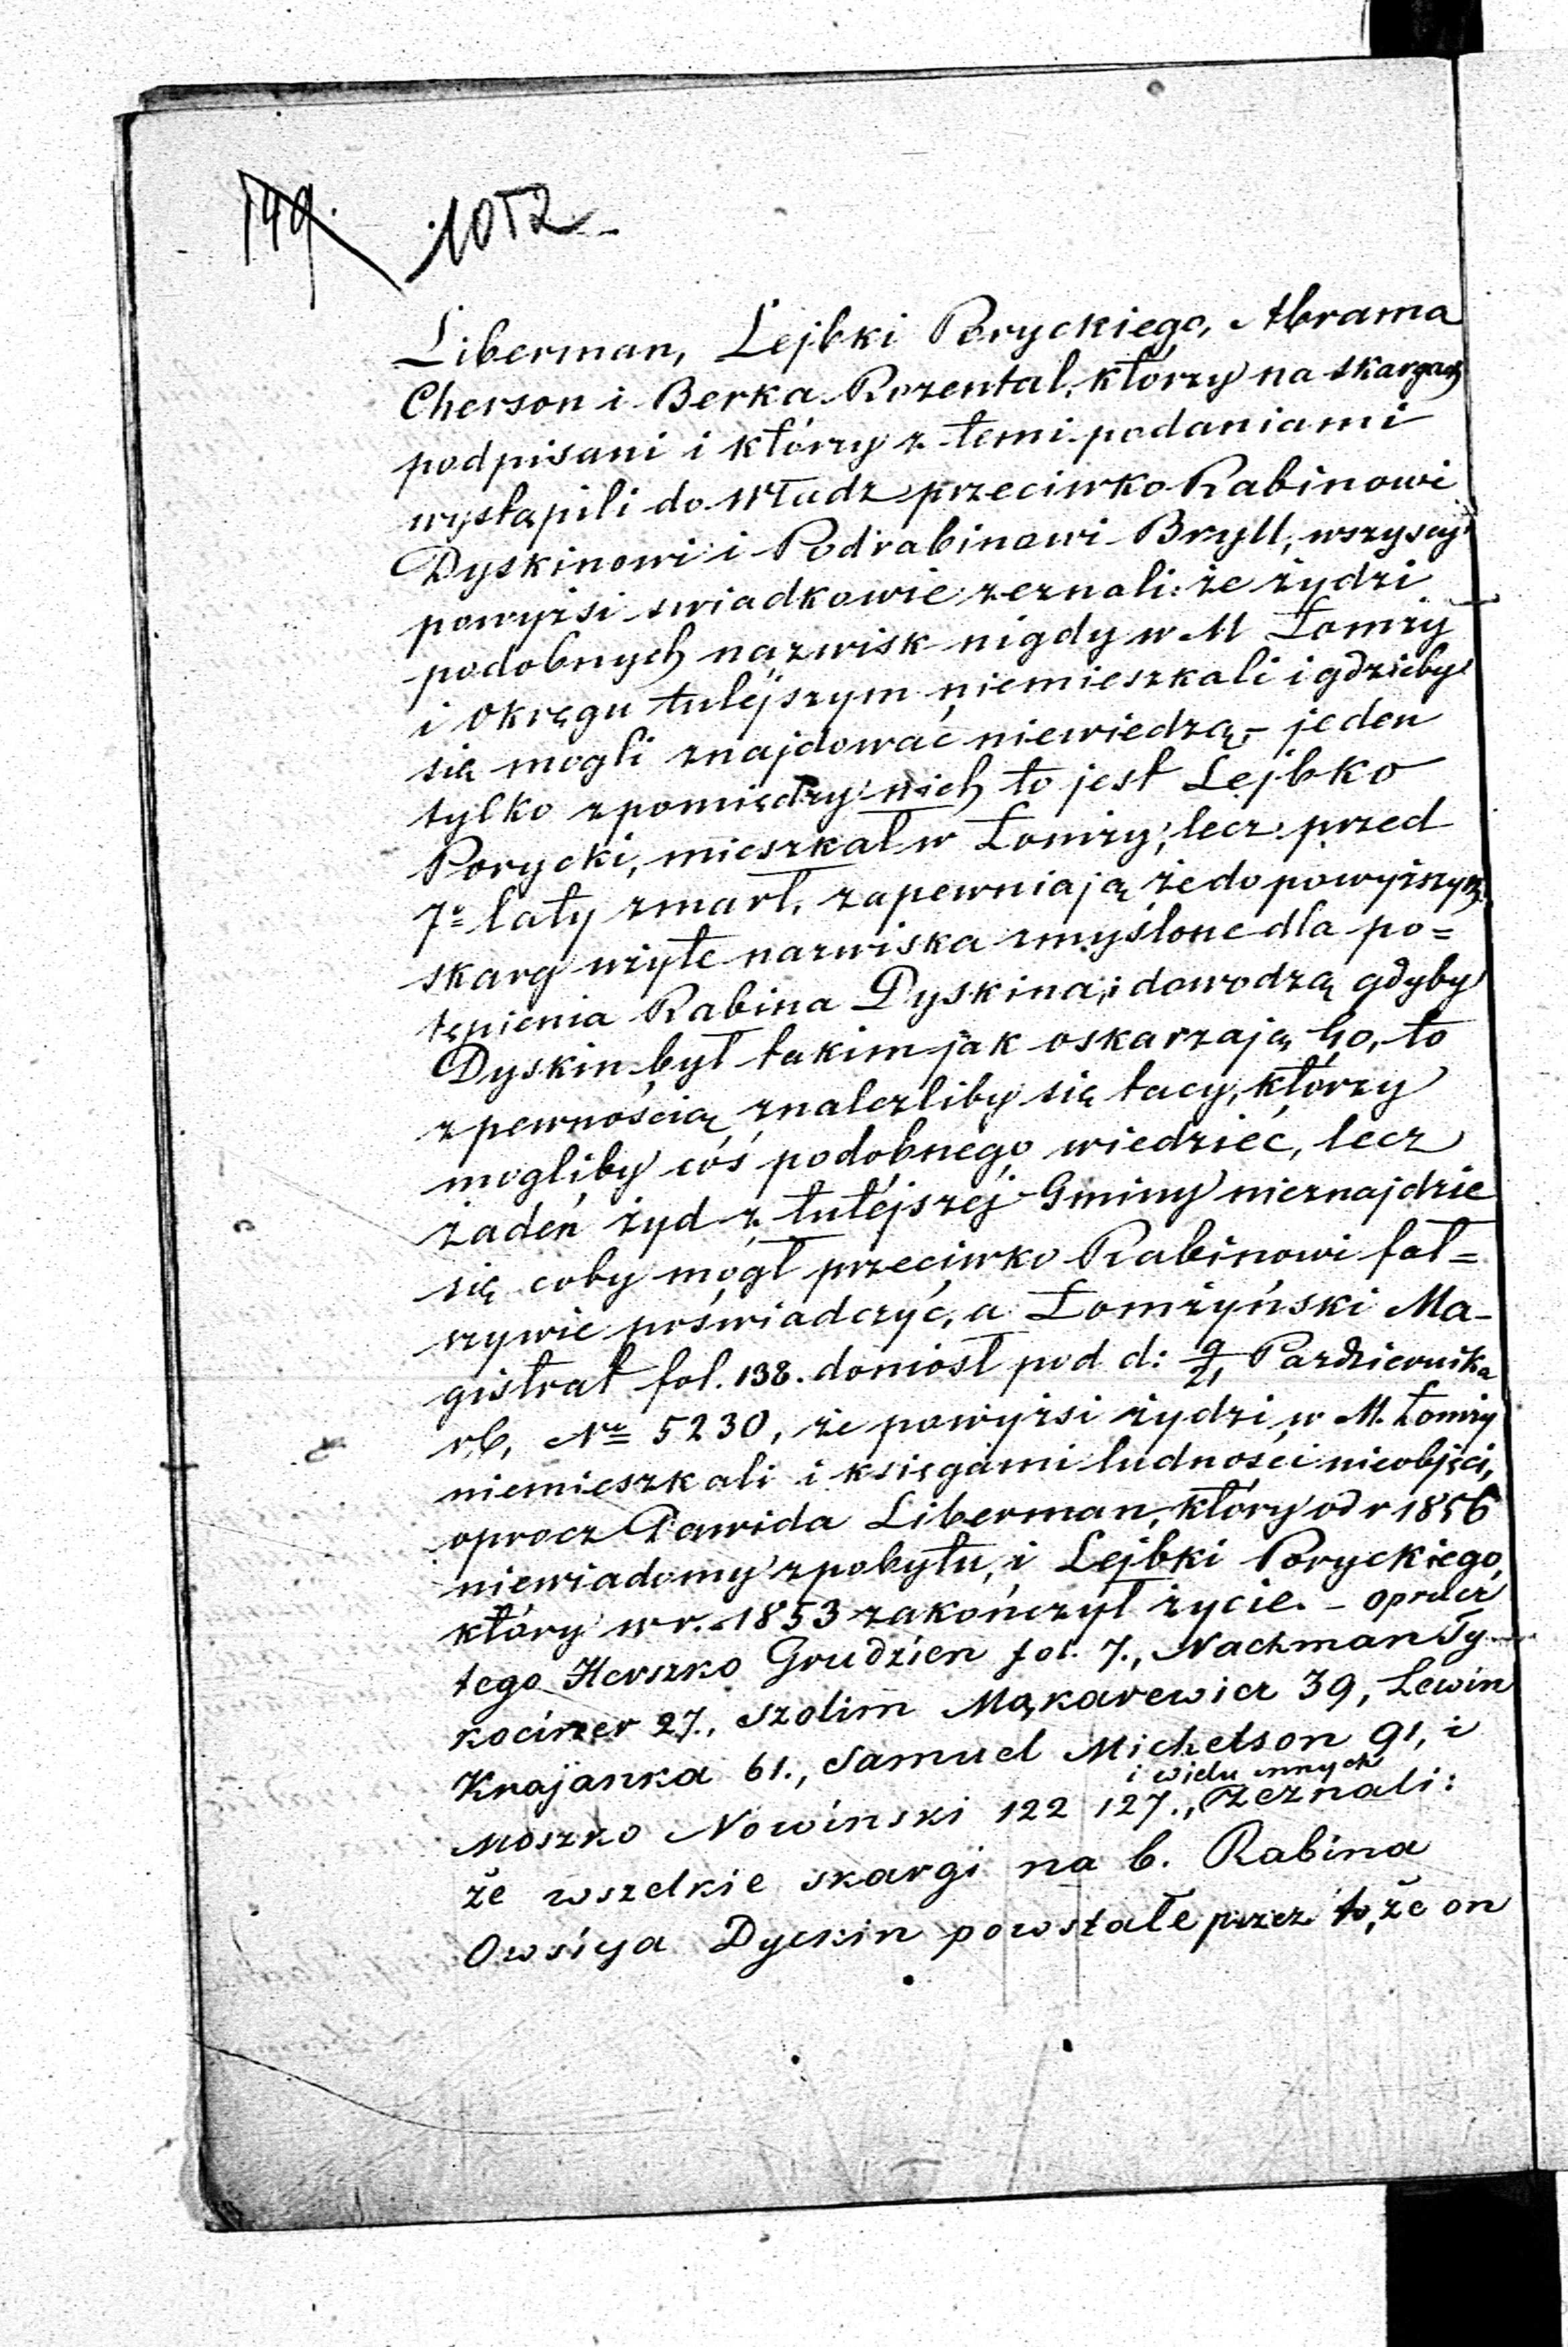 149. 1052
Liberman, Lejbki Poryckiego, Abrama
Cherson i Berka Rozental, którzy na skargach
podpisani i którzy z temi podaniami
wystąpili do Władz przeciwko Rabinowi
Dyskinowi i Podrabinowi Bryll, wszyscy
powyżsi swiadkowie zeznali: że żydzi
podobnych nazwisk nigdy w M Łomży
i Okręgu tutejszym niemieszkali i gdzieby
się mogli znajdować niewiedzą, – jeden
tylko zpomiędzy nich to jest Lejbko
Porycki, mieszkał w Łomży, lecz przed
7º laty zmarł, zapewniają że do powyższych
skarg użyte nazwiska zmyślone dla po=
tępienia Rabina Dyskina, i dowodzą gdyby
Dyskin był takim jak oskarzają Go, to
z pewnością znalezliby się tacy, którzy
mogliby coś podobnego wiedzieć, lecz
żaden żyd z tutejszej Gminy nieznajdzie
się coby mógł przeciwko Rabinowi fał=
szywie poświadczyć, a Łomżyński Ma-
gistrat fol. 138. doniosł pod d: 9/21 Pazdziernika
rb, Nr 5230, że powyżsi żydzi w M. Łomży
niemieszkali i księgami ludności nieobjęci,
oprocz Dawida Liberman, który od r 1856
niewiadomy z pobytu, i Lejbki Poryckiego,
który w r. 1853 zakończył życie. – oprócz
tego Herszko Grudzien fol. 7., Nachman Ty-
kociner 27., Szolim Mąkarewicz 39, Lewin
Krajanka 61., Samuel Michelson 91, i
i wielu innych
Moszko Nowiński 122 127., zeznali:
że wszelkie skargi na b. Rabina
Owsieja Dyskin powstałe przez to, że on